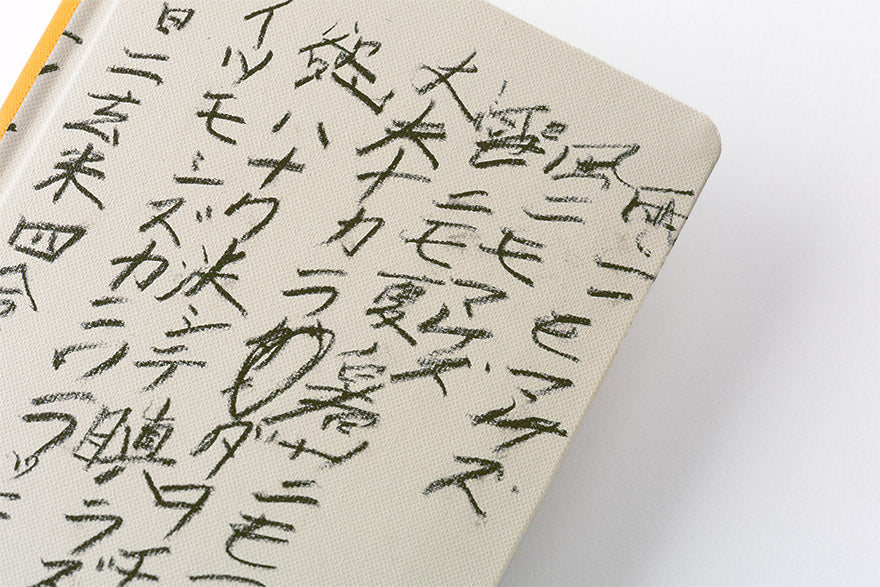 雨ニモマケズ
風ニモマケズ
雪ニモ夏ノ暑サニモ
丈夫ナカラダヲモチ
慾ハナク決シテ瞋ラズ
イツモシズカニワラッ
日ニ玄米四合